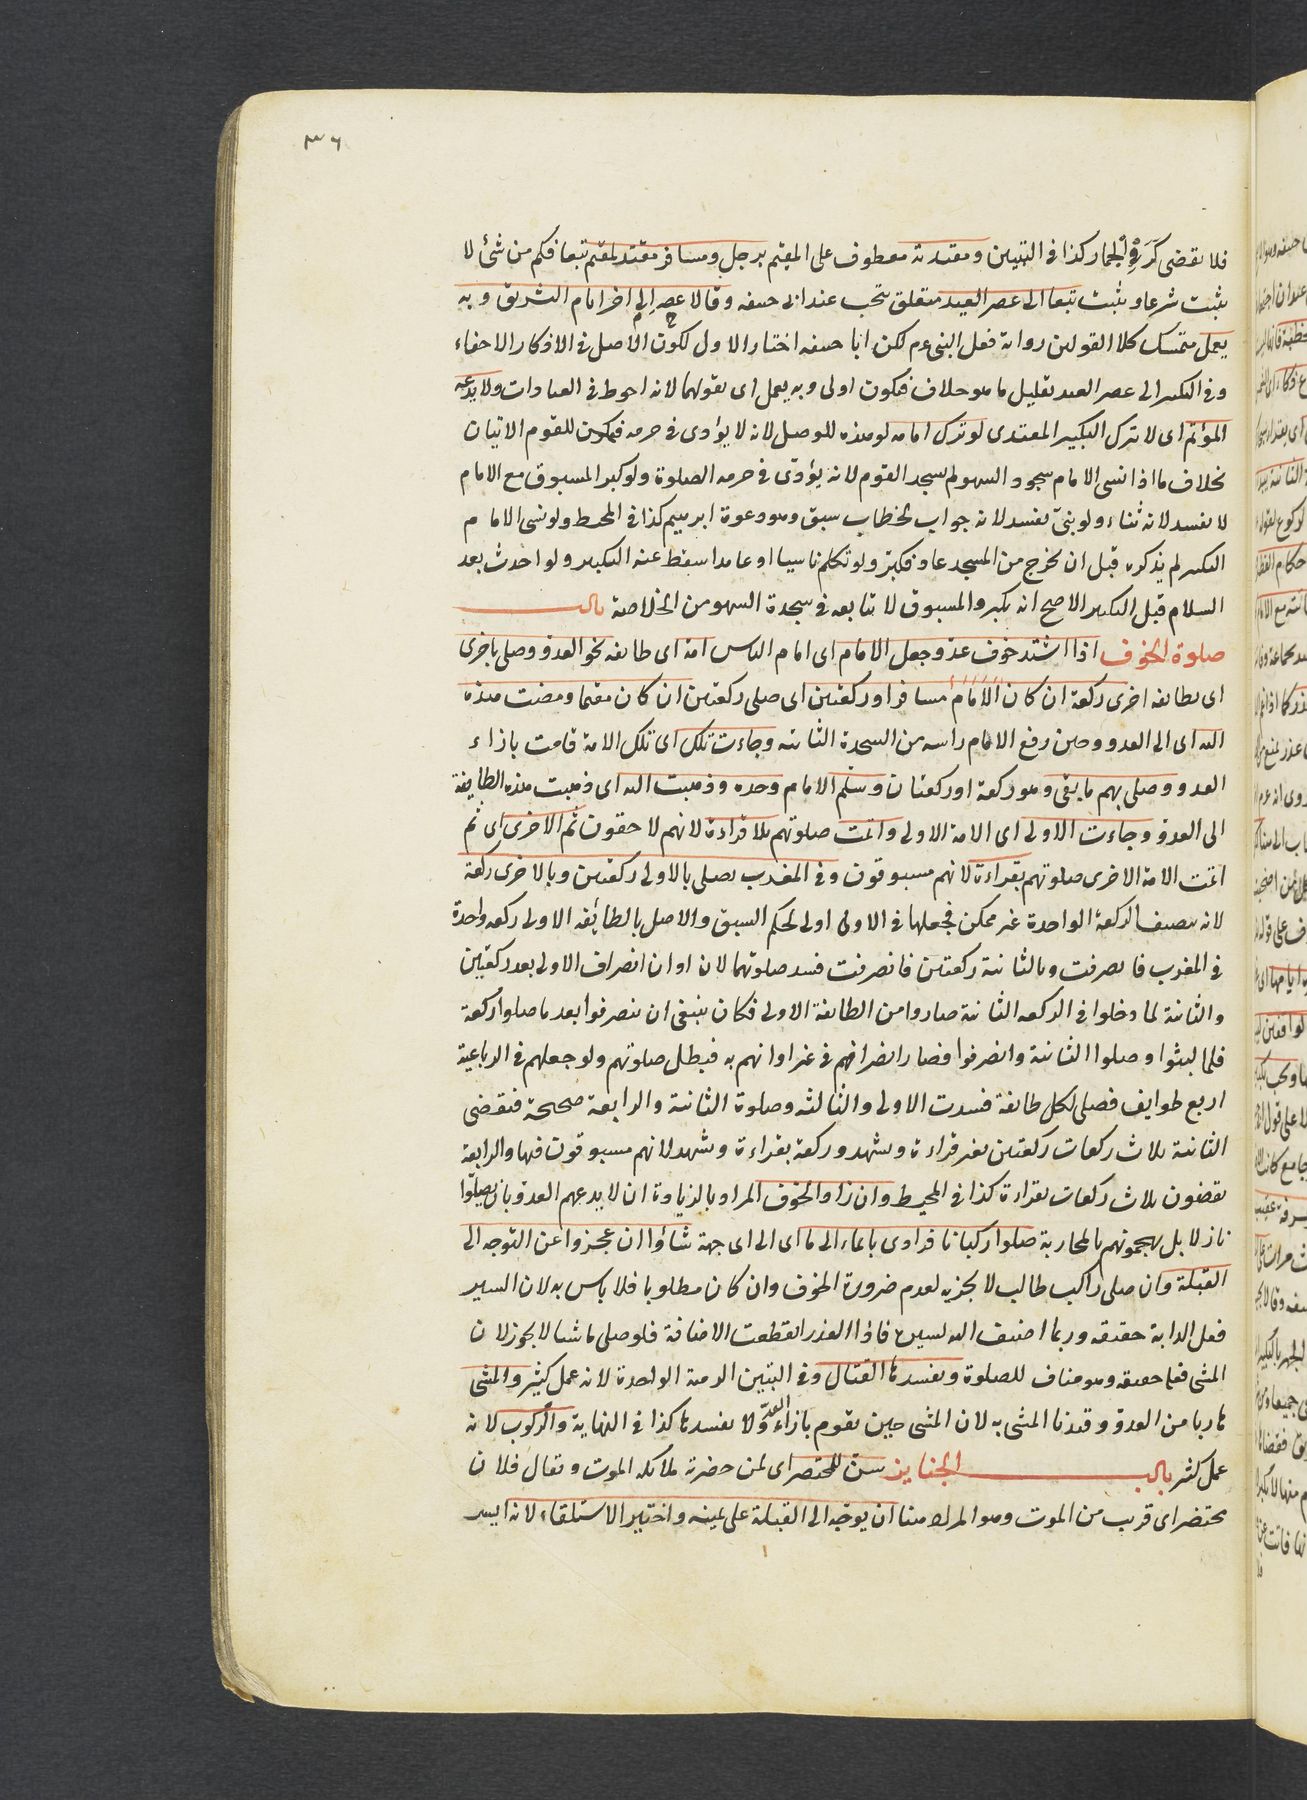 ٣٦
فلا تقضى كرمى الجمار كذا فى التبيين ومقتدية معطوف على المقيم برجل ومسافر مقتد لمقيم تبعا فكم من شئ لا
يثبت شرعا ويثبت تبعا الى عصر العيد متعلق بتجب عند ابى حنيفه وقالا الى عصر اخر ايام التشريق وبه
يعمل متمسك كلا القولين رواية فعل النبى عم لكن ابا حنيفه اختار الاول لكون الاصل فى الاذكار الاخفاء
وفى التكبير الى عصر العيد تقليل ما هو خلاف فيكون اولى وبه يعمل اى بقولهما لانه احوط فى العبادات ولا يدعه
المؤتم اى لا يترك التكبير المقتدى لو ترك امامه لو هذه للوصل لانه لا يؤدى فى حرمه فيمكن للقوم الاتيان
بخلاف ما اذا نسى الامام سجود السهو لم يسجد القوم لانه يؤدى فى حرمه الصلوة ولو كبر المسبوق مع الامام
لا يفسد لانه ثناء ولو لبى يفسد لانه جواب لخطاب سبق وهو دعوة ابرهيم كذا فى المحيط ولو نسى الامام
التكبير لم يذكره قبل ان يخرج من المسجد عاد فكبر ولو تكلم ناسيا او عامدا سقط عنه التكبير ولو احدث بعد
السلام قبل التكبير الاصح انه يكبر والمسبوق لا يتابعه فى سجدة السهو من الخلاصة باب
صلوة الخوف اذا اشتد خوف عدو جعل الامام اى امام الناس امة اى طائفه نحو العدو وصلى باخرى
اى بطائفه اخرى ركعة ان كان الامام مسافرا وركعتين اى صلى ركعتين ان كان مقيما ومضت هذه
اليه اى الى العدو وحين رفع الامام راسه من السجدة الثانيه وجاءت تلك اى تلك الامة قامت بازاء
العدو وصلى بهم ما بقى وهو ركعة او ركعتان وسلم الامام وحده وذهبت اليه اى ذهبت هذه الطايفة
الى العدو وجاءت الاولى اى الامة الاولى واتمت صلوتهم بلا قراءة لانهم لاحقون ثم الاخرى اى ثم
اتمت الامة الاخرى صلوتهم بقراءة لانهم مسبوقون وفى المغرب يصلى بالاولى ركعتين وبالاخرى ركعة
لانه تنصيف الركعة الواحدة غير ممكن فجعلها فى الاولى اولى لحكم السبق والاصل بالطائفه الاولى ركعه واحدة
فى المغرب فانصرفت وبالثانية ركعتين فانصرفت فسد صلوتهما لان اوان انصراف الاولى بعد ركعتين
والثانية لما دخلوا فى الركعه الثانية صاروا من الطائفة الاولى فكان ينبغى ان ينصرفوا بعد ما صلوا ركعة
فلما لبثوا وصلوا الثانية وانصرفوا فصار انصرافهم فى غير اوانهم به فبطل صلوتهم ولو جعلهم فى الرباعية
اربع طوايف فصلى لكل طائفة فسدت الاولى والثالثه وصلوة الثانية والرابعة صحيحة فتقضى
الثانية ثلاث ركعات ركعتين بغير قراءة وتشهد وركعة بقراءة وتشهد لانهم مسبوقون فيها والرابعة
يقضون ثلاث ركعات بقراءة كذا فى المحيط وان زاد الخوف المراد بالزيادة ان لا يدعهم العدو بان يصلوا
نازلا بل يهجمونهم بالمحاربة صلوا ركبانا فرادى بايماء الى ما اى الى اى جهة شاؤا ان عجزوا عن التوجه الى
القبلة وان صلى راكب طالب لا يجزيه لعدم ضرورة الخوف وان كان مطلوبا فلا باس به لان السير
فعل الدابة حقيقه وربما اضيف اليه لسيره فاذا العذر انقطعت الاضافة فلو صلى ماشيا لا يجوز لان
المشى فعله حقيقه وهو مناف للصلوة ويفسدها القتال وفى التبيين الرمية الواحدة لانه عمل كثير والمشى
هاربا من العدو وقيدنا المشى به لان المشى حين يقوم بازاء العدو لا يفسدها كذا فى النهاية والركوب لانه
عمل كثير باب الجنايز سن للمحتضر اى لمن حضرته ملائكه الموت ويقال فلان
محتضر اى قريب من الموت وهو المراد هنا ان يوجه الى القبلة على يمينه واختير الاستلقاء لانه ايسر